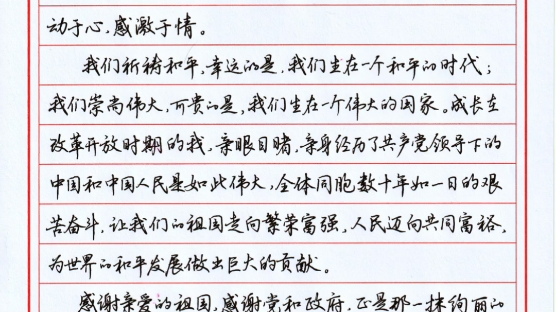 动于心,感激于情。
我们祈祷和平,幸运的是,我们生在一个和平的时代;
我们崇尚伟大,可贵的是,我们生在一个伟大的国家。成长在
改革开放时期的我,亲眼目睹,亲身经历了共产党领导下的
中国和中国人民是如此伟大,全体同胞数十年如一日的艰
苦奋斗,让我们的祖国走向繁荣富强,人民迈向共同富裕,
为世界的和平发展做出巨大的贡献。
感谢亲爱的祖国,感谢党和政府,正是那一抹绚丽的